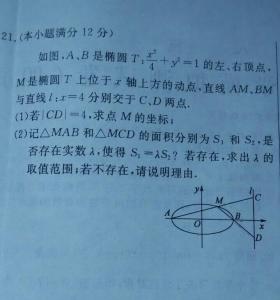 21.(本小题满分 12 分)
如图,A、B 是椭圆 T:x²/4+y²=1 的左、右顶点,
M 是椭圆 T 上位于 x 轴上方的动点,直线 AM、BM
与直线 l:x=4 分别交于 C、D 两点.
(1)若|CD|=4,求点 M 的坐标;
(2)记△MAB 和△MCD 的面积分别为 S₁ 和 S₂,是
否存在实数 λ,使得 S₁=λS₂?若存在,求出 λ 的
取值范围;若不存在,请说明理由.
y
l
C
M
A
O
B
x
D